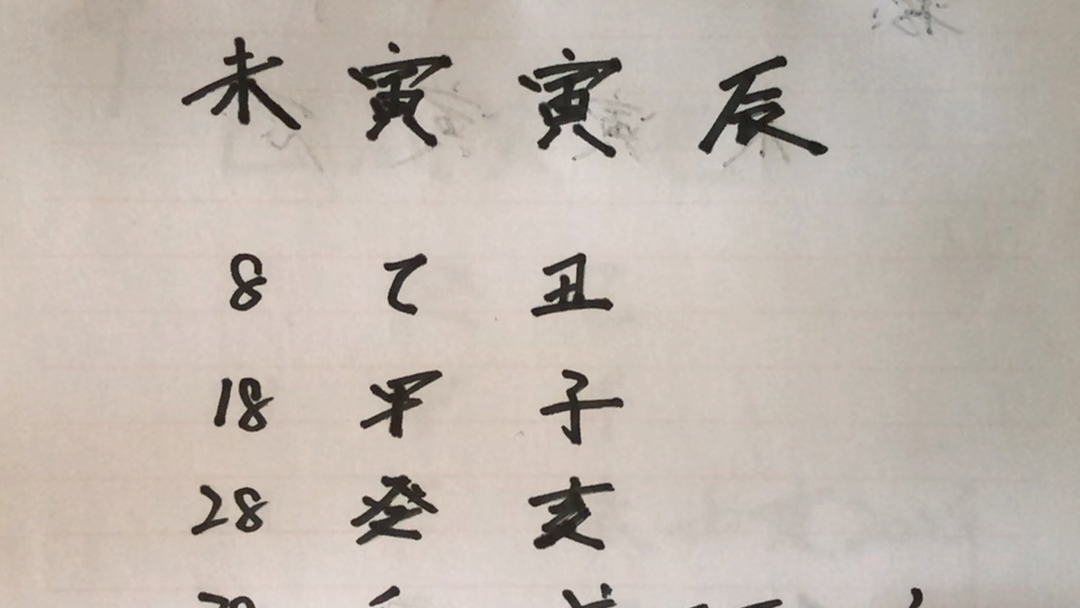 未 寅 寅 辰
8 乙 丑
18 甲 子
28 癸 亥